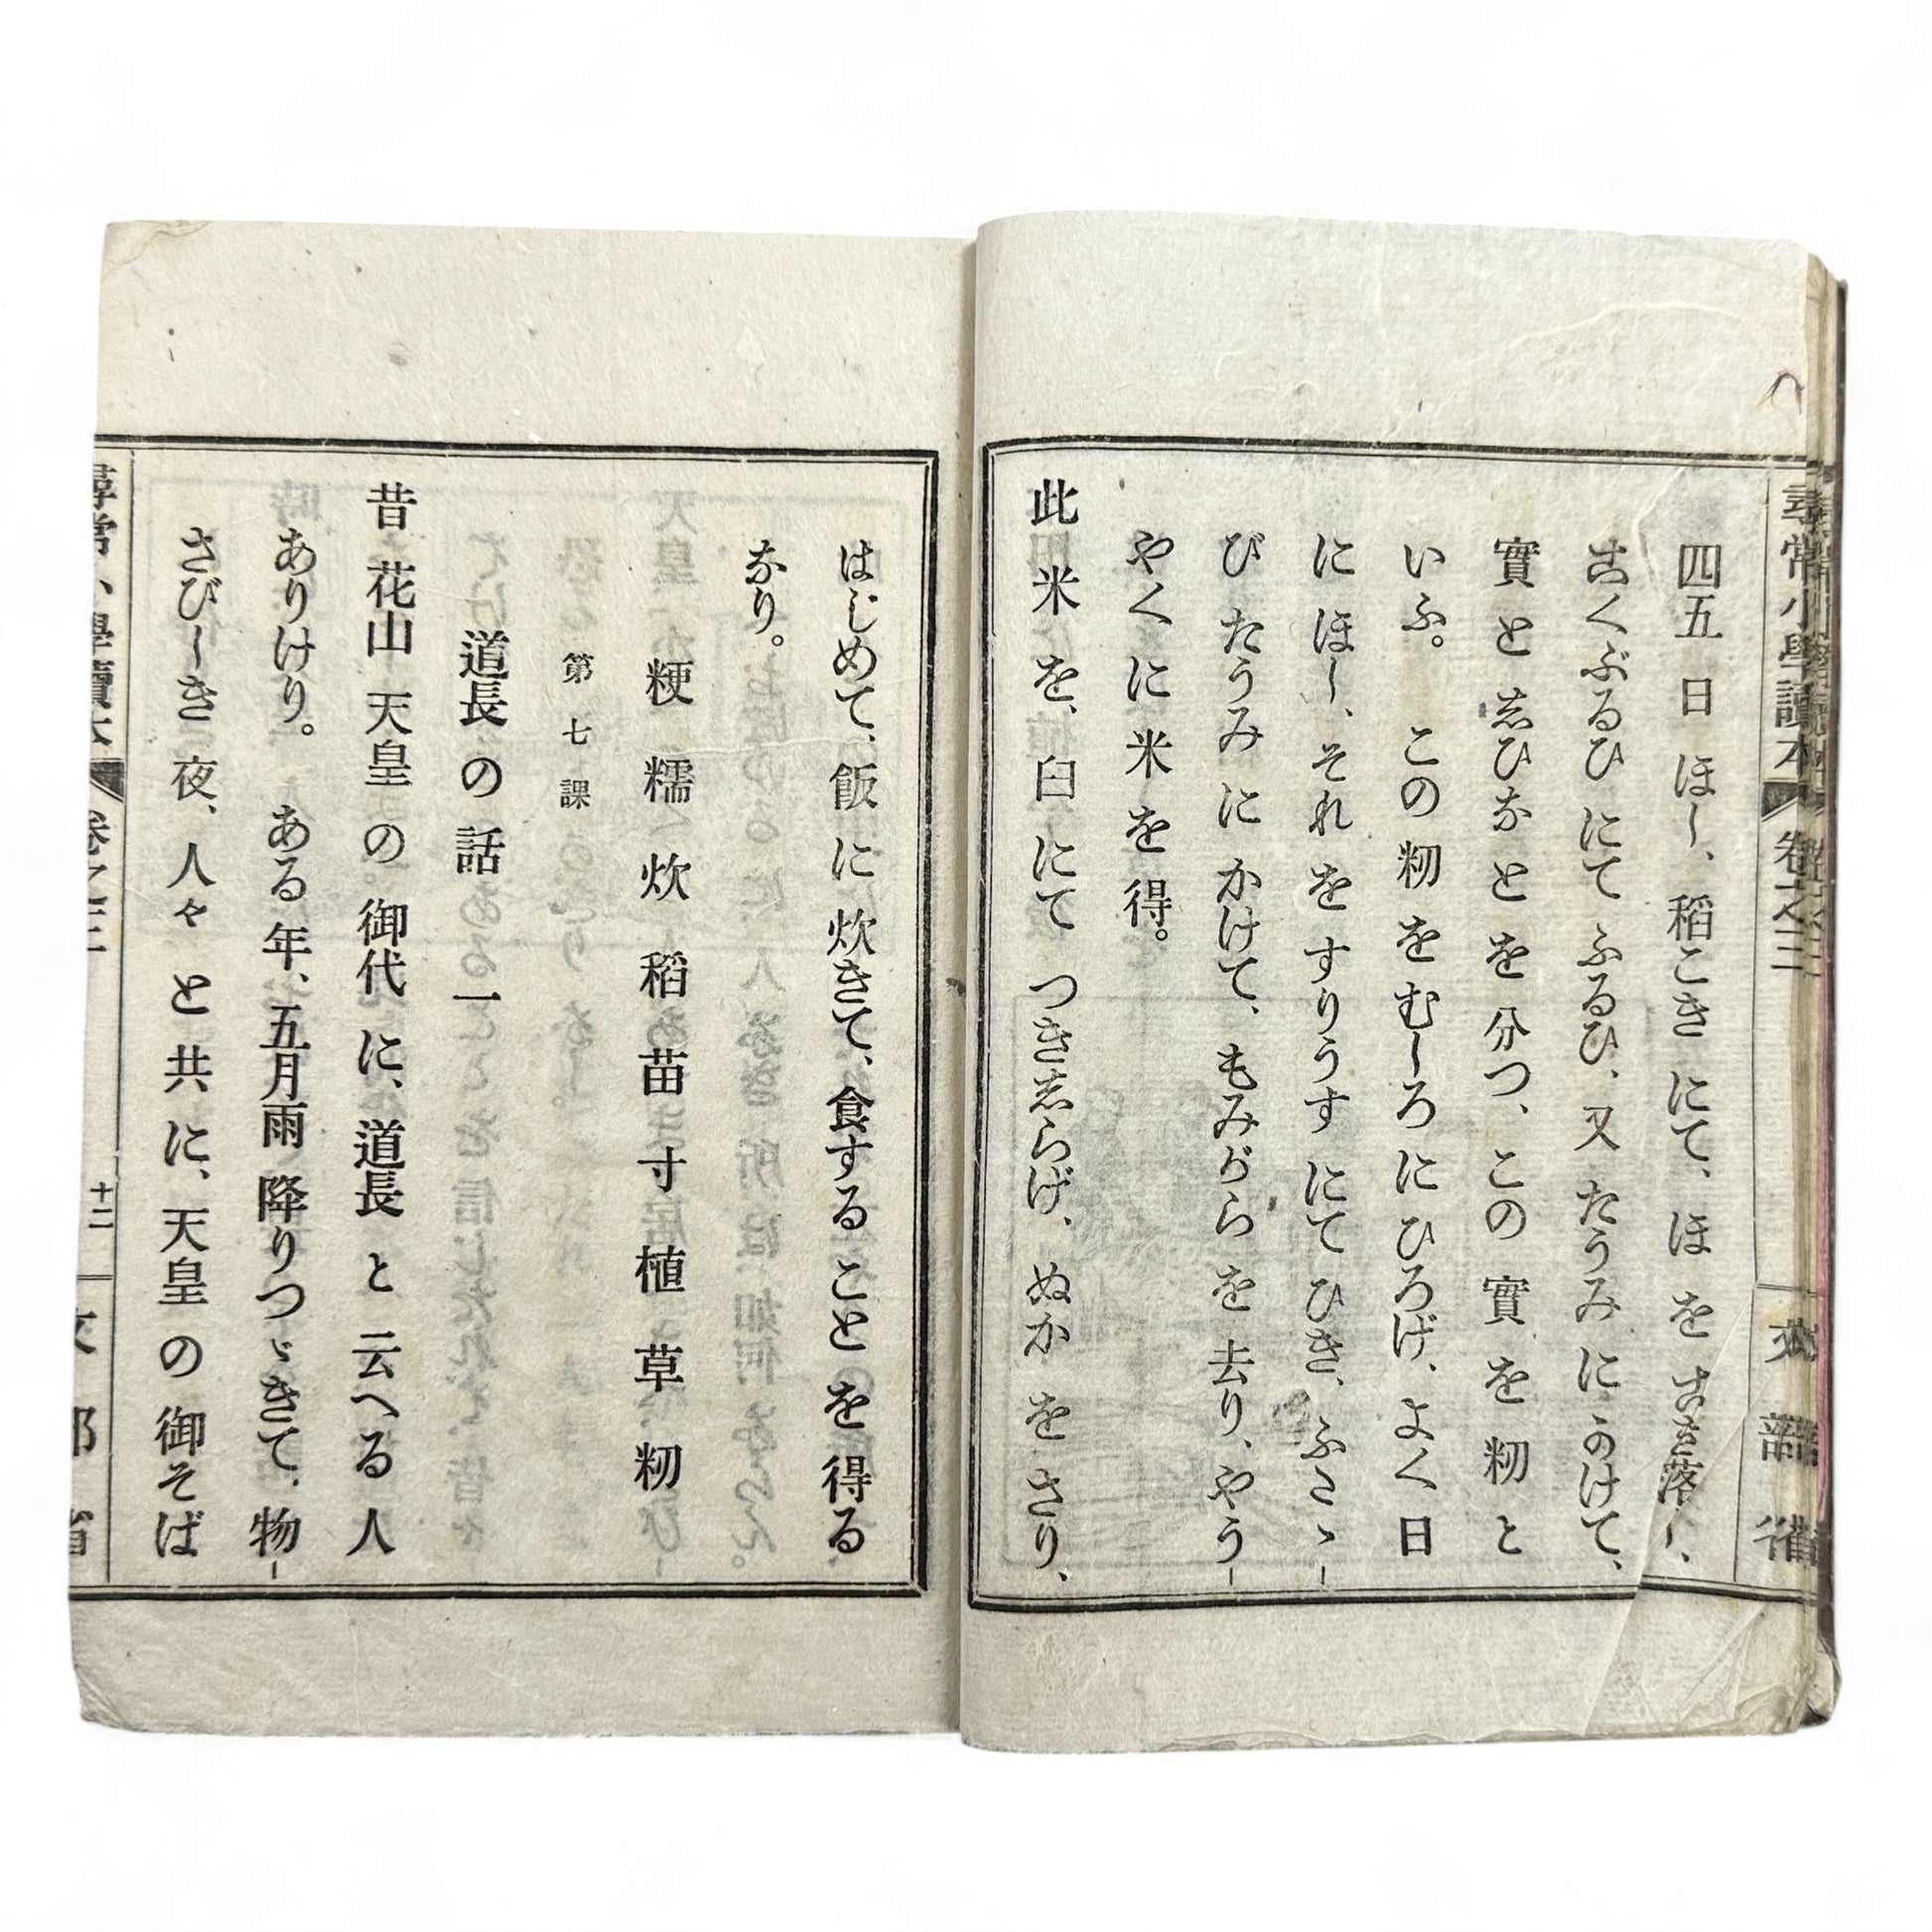 尋常小學讀本 卷之三 文部省
四五 日 ほし、稻こき にて、ほ を こき落し、
こくぶるひ にて ふるひ、又 たうみ に かけて、
實 と しひな と を 分つ、この 實 を 籾 と
いふ。 この 籾 を むしろ に ひろげ、よく 日
に ほし、それ を すりうす にて ひき、ふたゝ-
び たうみ に かけて、もみがら を 去り、やう-
やく に 米 を 得。
此 米 を、臼 にて つきしらげ、ぬか を さり、
はじめて、飯 に 炊きて、食する こと を 得る
なり。
粳 糯 炊 稻 苗 寸 植 草 籾
第七課
道長 の 話 一
昔 花山 天皇 の 御代 に、道長 と 云へる 人
ありけり。 ある 年、五月雨 降りつゞきて、物-
さびしき 夜、人々 と 共 に、天皇 の 御そば
尋常小學讀本 卷之三 十二 文部省